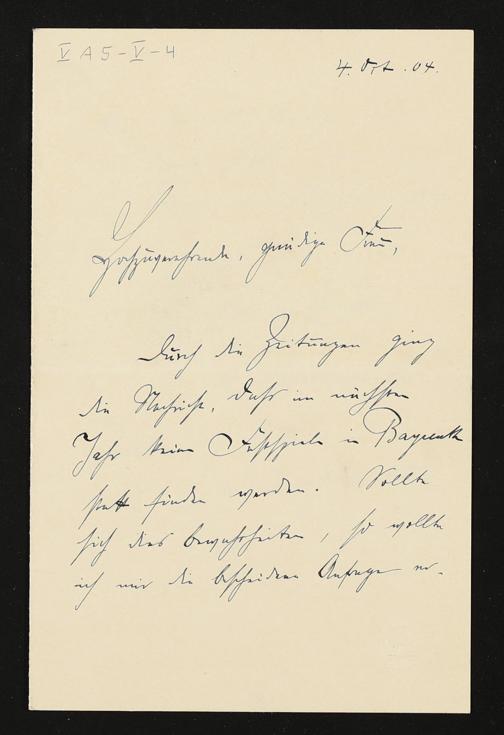 V A 5 - V - 4
4. Oct. 04.
Hochzuverehrende, gnädige Frau,
Durch die Zeitungen ging
die Nachricht, daß im nächsten
Jahr keine Festspiele in Bayreuth
statt finden werden. Sollte
sich dies bewahrheiten, so wollte
ich mir die bescheidene Anfrage er-